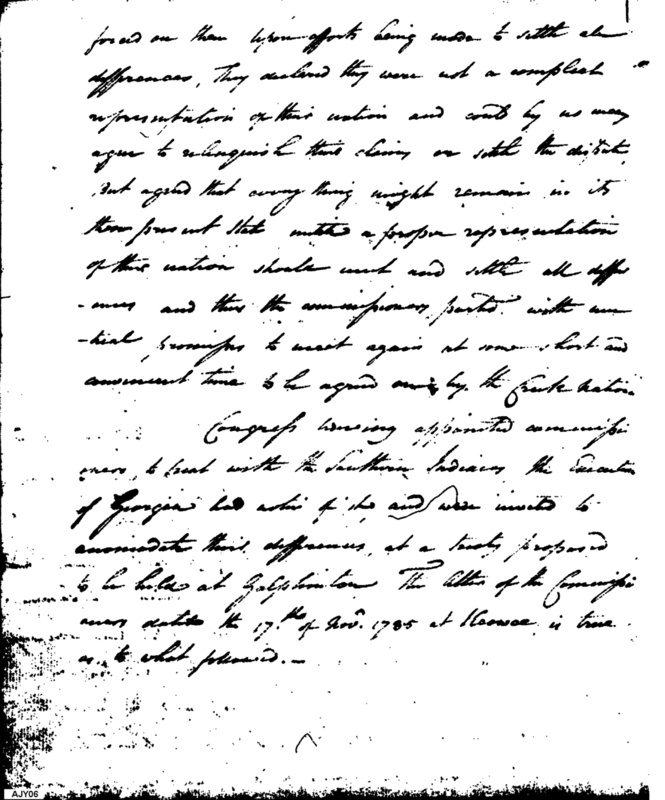 forced on them Upon efforts being made to settle all
differences, They declared they were not a compleat
representation of their nation and could by no means
agree to relinquish their claims or settle the dispute,
but agreed that every thing might remain in its
then present State until a proper representation
of their nation should meet and settle all differ
-ences and thus the commissioners parted with mu
-tual promises to meet again at some short and
convenient time to be agreed on by the Creek nation
Congress having appointed commissi
oners, to treat with the Southern Indians the Executive
of Georgia had notice of it and were invited to
accomodate their differences, at a treaty proposed
to be held at Galphinton The letter of the Commissi
oners dated the 17.th of Nov.r 1785 at Keowee is true
as to what followed.—
AJY06